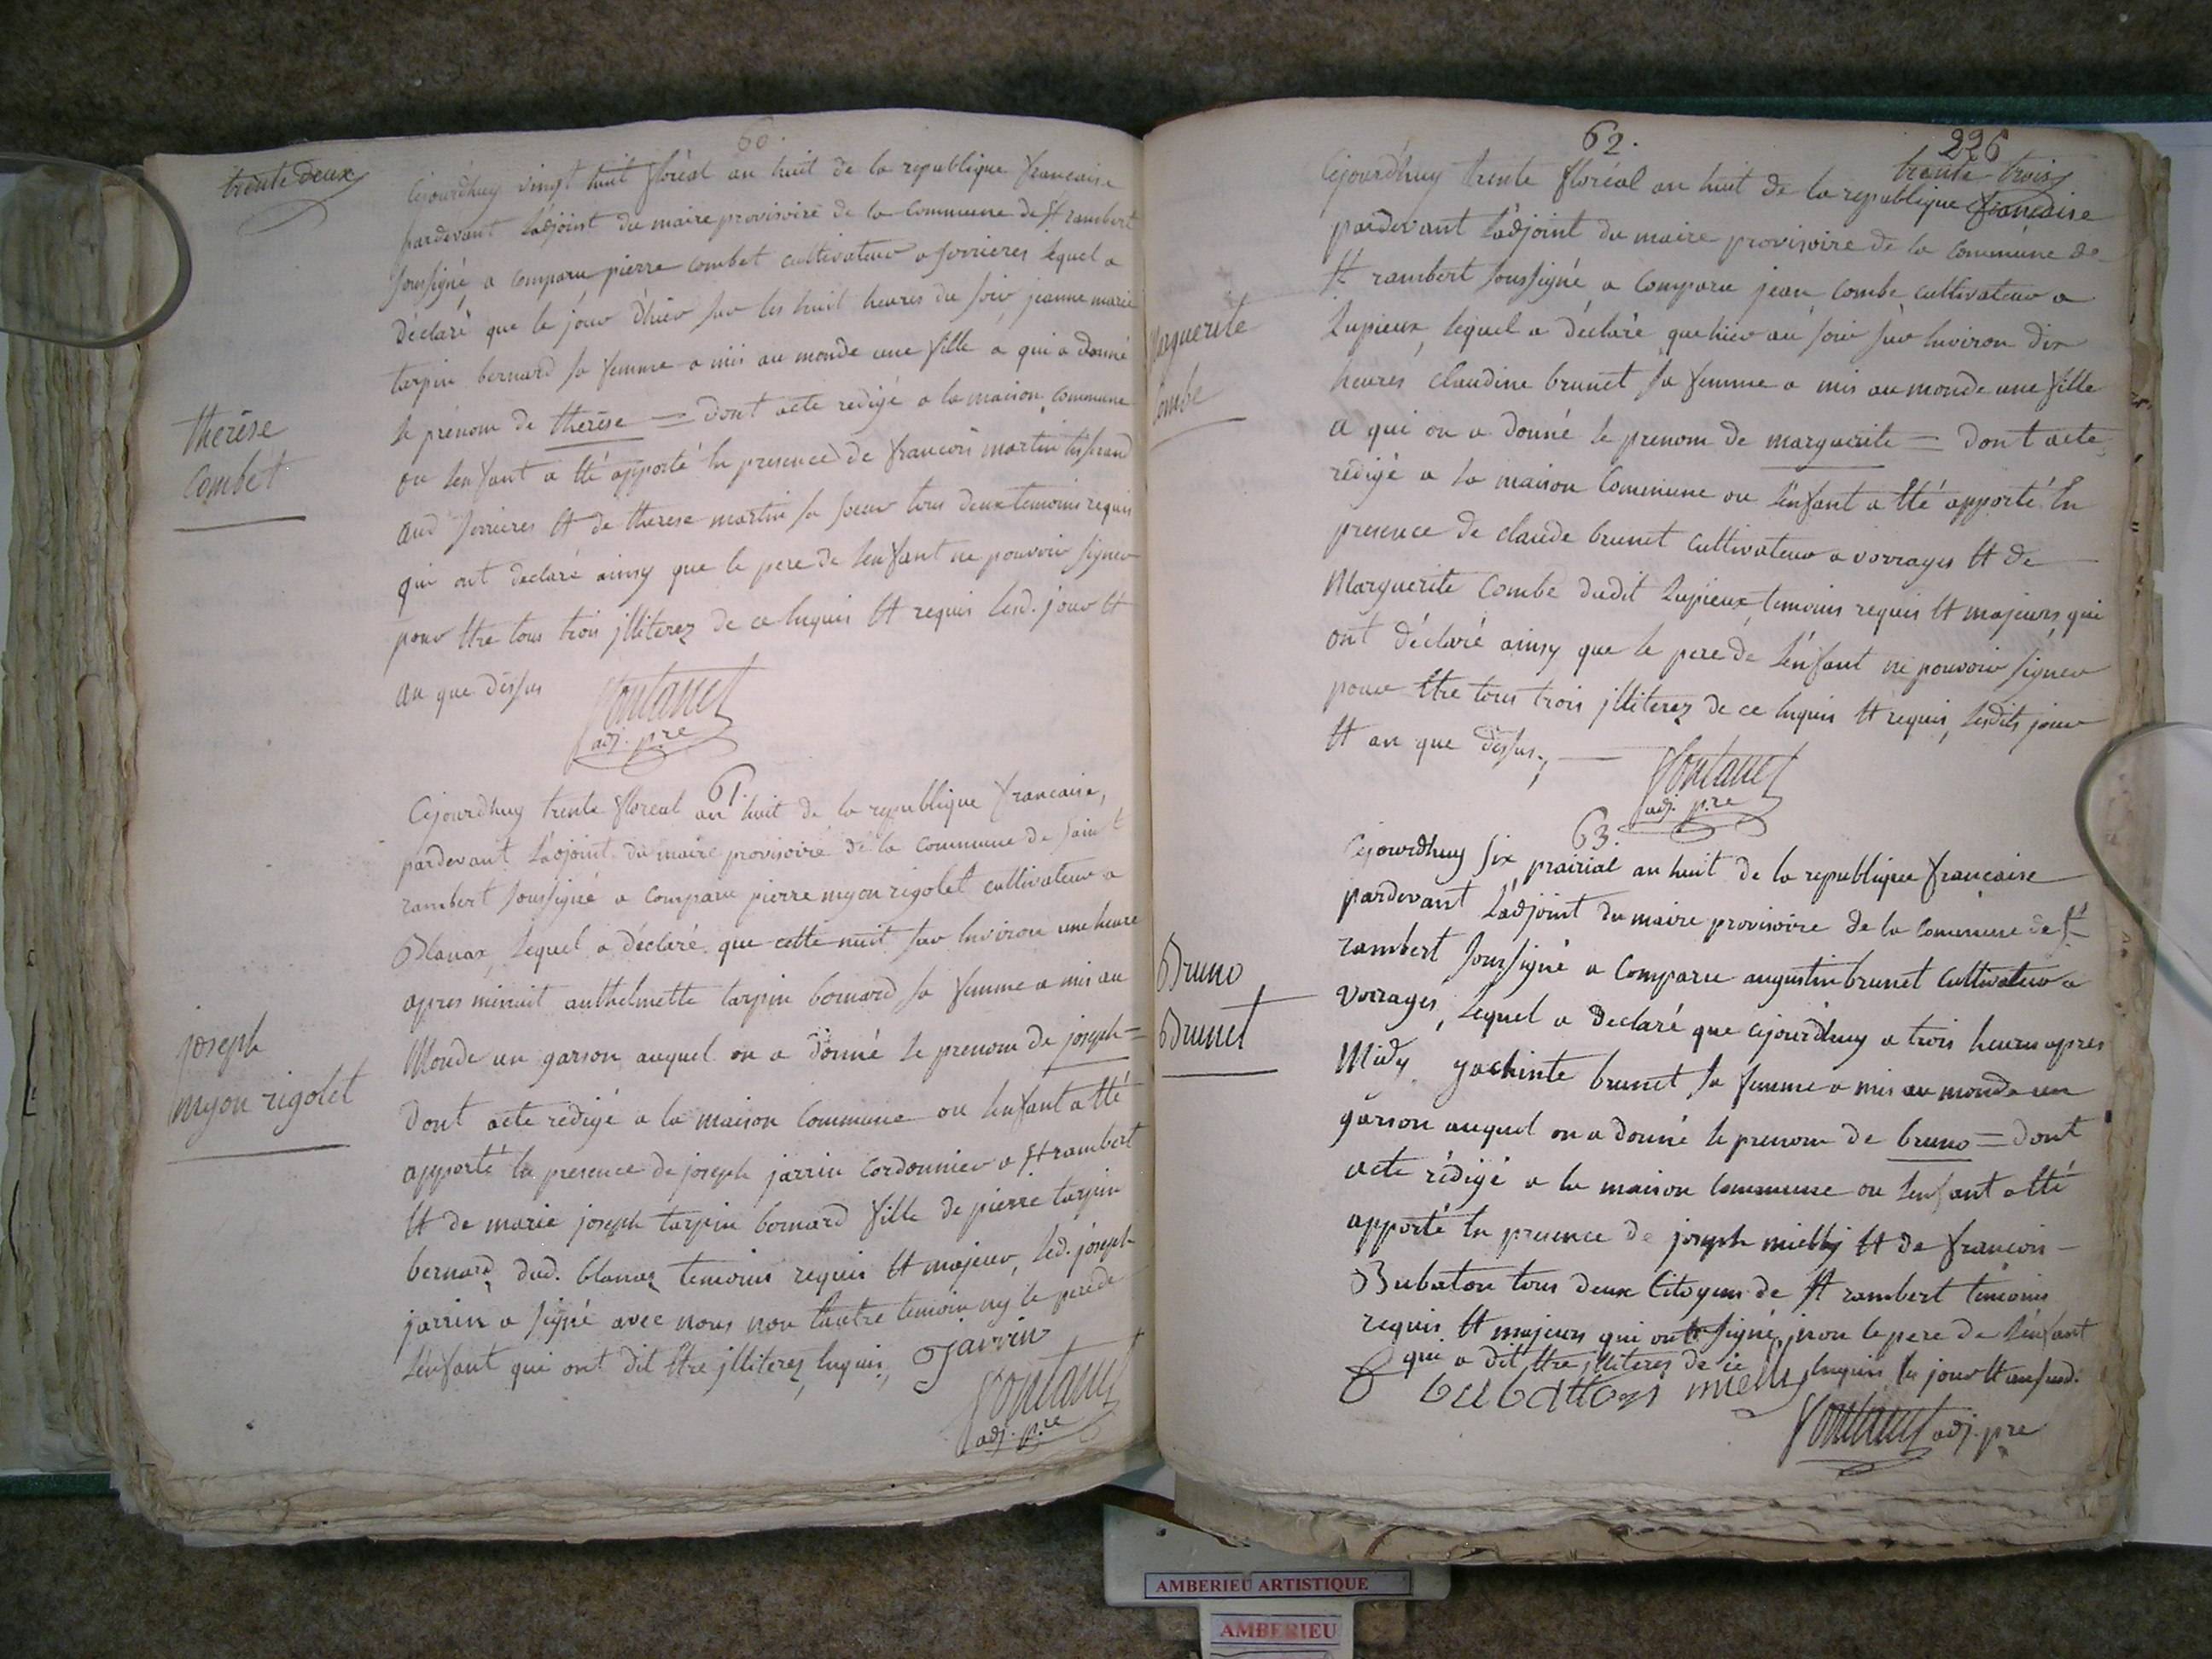 trente deux
60.
Cejourdhuy vingt huit floréal an huit de la republique francaise
pardevant Ladjoint du maire provisoire de la Commune de St rambert
soussigné a comparu pierre combet cultivateur a serrieres lequel a
déclaré que le jour d'hier sur les huit heures du soir, jeanne marie
tarpin bernard sa femme a mis au monde une fille a qui a donné
le prénom de thérèse = dont acte redigé a la maison commune
ou Lenfant a été apporté En presence de francois martin
aud serrieres Et de therese martin sa soeur tous deux temoins requis
qui ont declaré ainsy que le pere de Lenfant ne pouvoir signer
pour Etre tous trois jlliterez de ce Enquis Et requis Lesd. jour Et
an que dessus
fontanel
adj. p.re
thérèse
Combet
61.
Cejourdhuy trente floreal an huit de la republique francaise,
pardevant Ladjoint du maire provisoire de la commune de saint
rambert soussigné a comparu pierre myon rigolet cultivateur a
Blanaz, Lequel a déclaré que cette nuit sur Environ une heure
apres minuit anthelmette tarpin bernard sa femme a mis au
Monde un garson auquel on a donné le prenom de joseph =
Dont acte redigé a la maison Commune ou Lenfant a été
apporté En presence de joseph jarrin cordonnier a St rambert
Et de marie joseph tarpin bernard fille de pierre tarpin
bernard dud. blanaz temoins requis Et majeur, Led. joseph
jarrin a signé avec nous non Lautre temoin ny le pere de
Lenfant qui ont dit Etre jlliterez Enquis, Jarrin
fontanel
adj. p.re
joseph
myon rigolet
62.
226
trente trois
Cejourdhuy trente floréal an huit de la republique francaise
pardevant Ladjoint du maire provisoire de la commune de
St rambert soussigné a comparu jean combe cultivateur a
Lupieux, lequel a déclaré que hier au soir sur Environ dix
heures claudine brunet sa femme a mis au monde une fille
a qui on a donné le prenom de marguerite = dont acte
rédigé a la maison Commune ou Lenfant a été apporté En
presence de claude brunet cultivateur a vorrages Et de
Marguerite Combe dudit Lupieux, temoins requis Et majeurs, qui
ont déclaré ainsy que le pere de Lenfant ne pouvoir signer
pour Etre tous trois jlliterez de ce Enquis Et requis, Lesdits jour
Et an que dessus,
fontanel
adj. p.re
Marguerite
Combe
63.
Cejourdhuy six prairial an huit de la republique francaise
pardevant Ladjoint du maire provisoire de la Commune de St
rambert soussigné a comparu augustin brunet cultivateur a
Vorrages, Lequel a declaré que cejourdhuy a trois heures apres
Midy yachinte brunet sa femme a mis au monde un
garson auquel on a donné le prenom de bruno = dont
acte rédigé a la maison Commune ou Lenfant a été
apporté En presence de joseph Et de francois
Bubaton tous deux Citoyens de St rambert temoins
requis Et majeurs qui ont signé, non le pere de Lenfant
qui a dit Etre jlliteres de ce Enquis, Les jour Et an susd.
bubatton
fontanel adj. p.re
Bruno
Brunet
AMBERIEU ARTISTIQUE
AMBERIEU